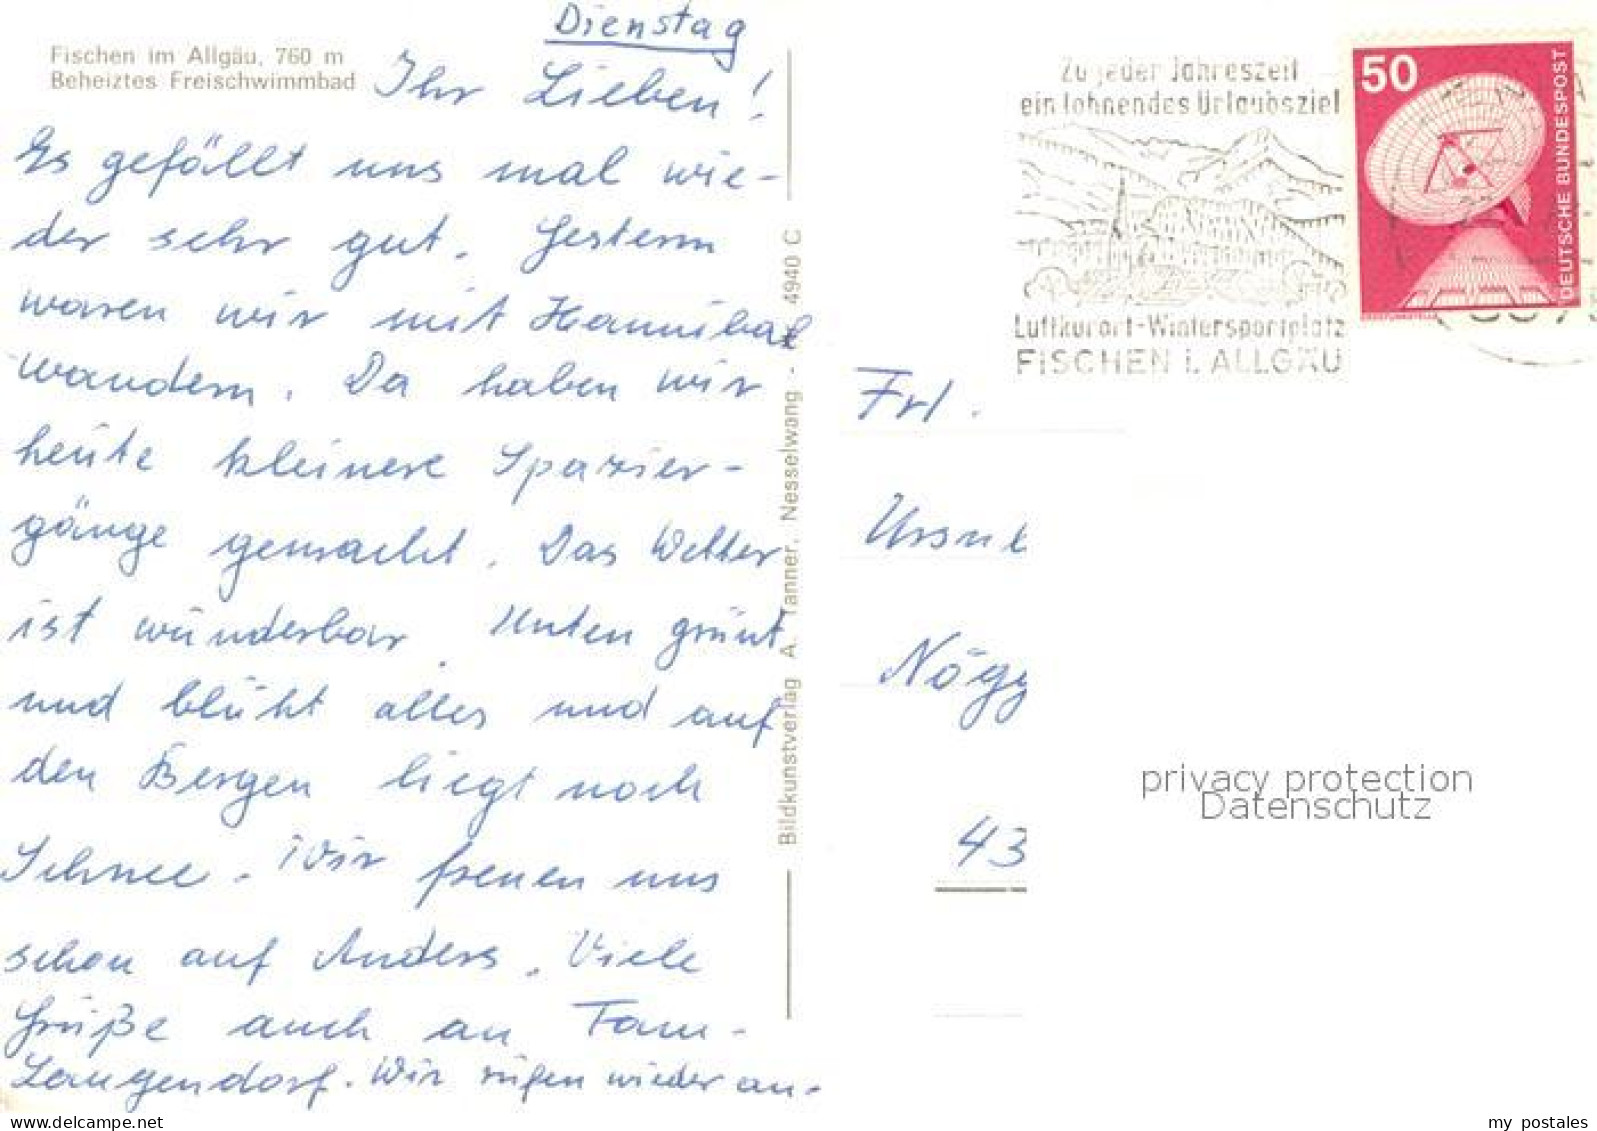 Dienstag
Fischen im Allgäu, 760 m
Beheiztes Freischwimmbad
Ihr Lieben!
Es gefällt uns mal wie-
der sehr gut. Gestern
waren wir mit Hannibal
wandern. Da haben wir
heute kleinere Spazier-
gänge gemacht. Das Wetter
ist wunderbar. Unten grünt
und blüht alles und auf
den Bergen liegt noch
Schnee. Wir freuen uns
schon auf Anders. Viele
Grüße auch an Fam.
Langendorf. Wir rufen wieder an.
Bildkunstverlag A. Tanner, Nesselwang - 4940 C
Zu jeder Jahreszeit
ein lohnendes Urlaubsziel
Luftkurort-Wintersportplatz
FISCHEN i. ALLGÄU
50
DEUTSCHE BUNDESPOST
Frl.
Ursul
Nögg
43
privacy protection
Datenschutz
www.delcampe.net
my_postales